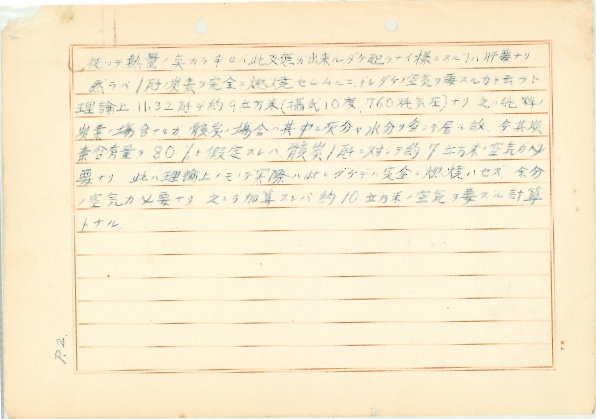 従ッテ熱量ノ点カラ申セバ此反應ガ出来ルダケ起ラナイ様ニスルヿガ肝要ナリ
然ラバ1瓩ノ炭素ヲ完全ニ燃焼セシムルニドレダケノ空気ヲ要スルカト云フト
理論上11.32瓩デ約9立方米(攝氏10度、760粍気圧)ナリ 之ハ純粋ノ
炭素ノ場合ナルガ骸炭ノ場合ハ其中ニ灰分ヤ水分ヲ含ンデ居ル故、今其炭
素含有量ヲ80%ト假定スレバ骸炭1瓩ニ対シテ約7立方米ノ空気ガ必
要ナリ 此ハ理論上ノモノデ実際ハ此レダケデハ完全ニ燃焼ハセズ、余分
ノ空気ガ必要ナリ 之ヲ加算スレバ約10立方米ノ空気ヲ要スル計算
トナル
P.2.